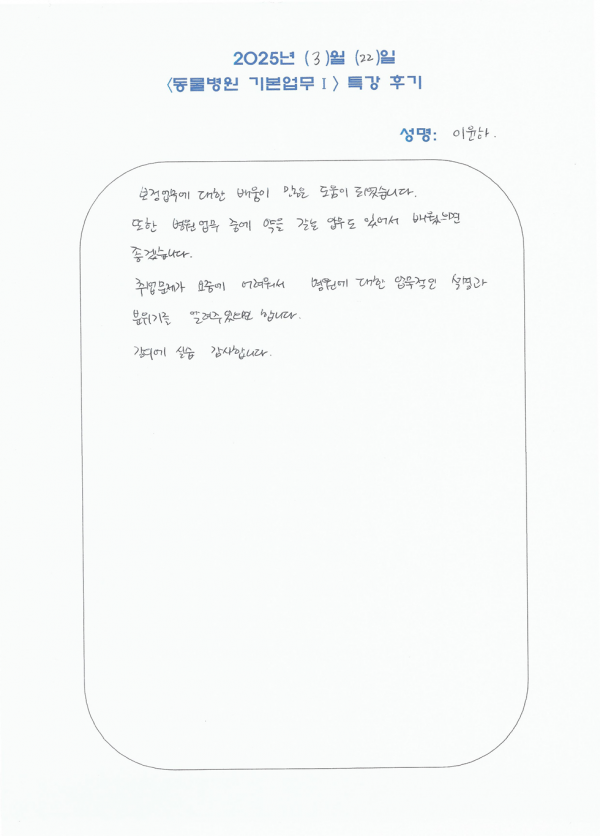 2025년 (3)월 (22)일
<동물병원 기본업무 I> 특강 후기
성명: 이윤하.
보정업무에 대한 배움이 많은 도움이 되었습니다.
또한 병원업무 중에 약을 갈는 업무도 있어서 배웠으면
좋겠습니다.
취업문제가 요즘에 어려워서 병원에 대한 업무적인 설명과
분위기를 알려주었으면 합니다.
강의에 실습 감사합니다.